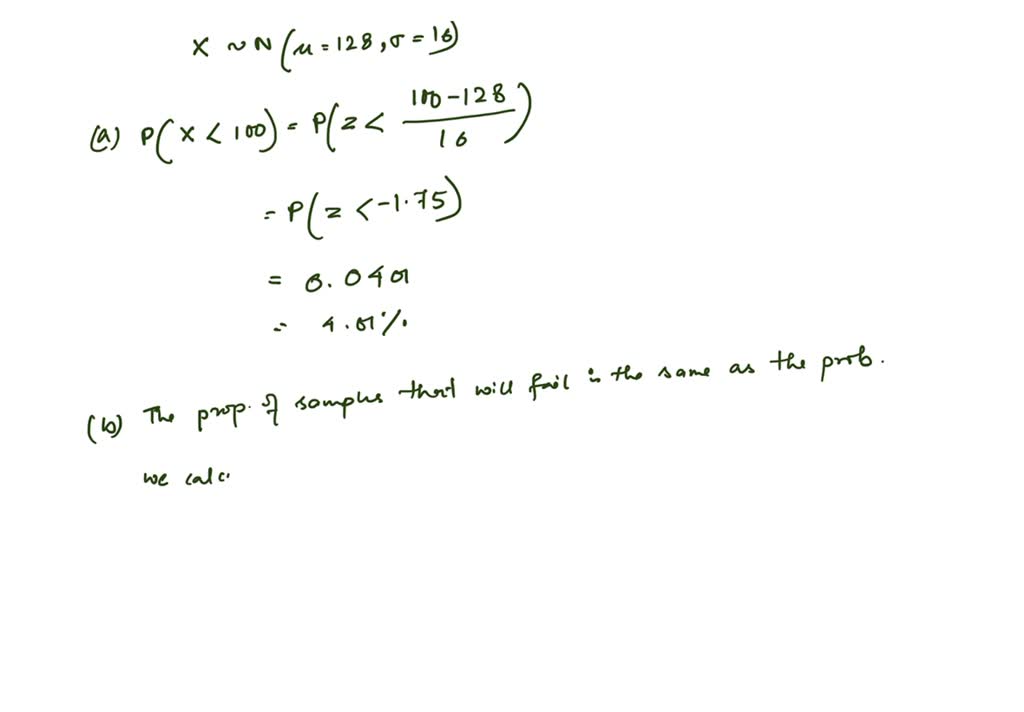 X ~ N(μ = 128, σ = 16)
(a) P(X < 100) = P(z < (100 - 128)/16)
= P(z < -1.75)
= 0.0401
= 4.01%
(b) The prop. of samples that will fail is the same as the prob.
we calc